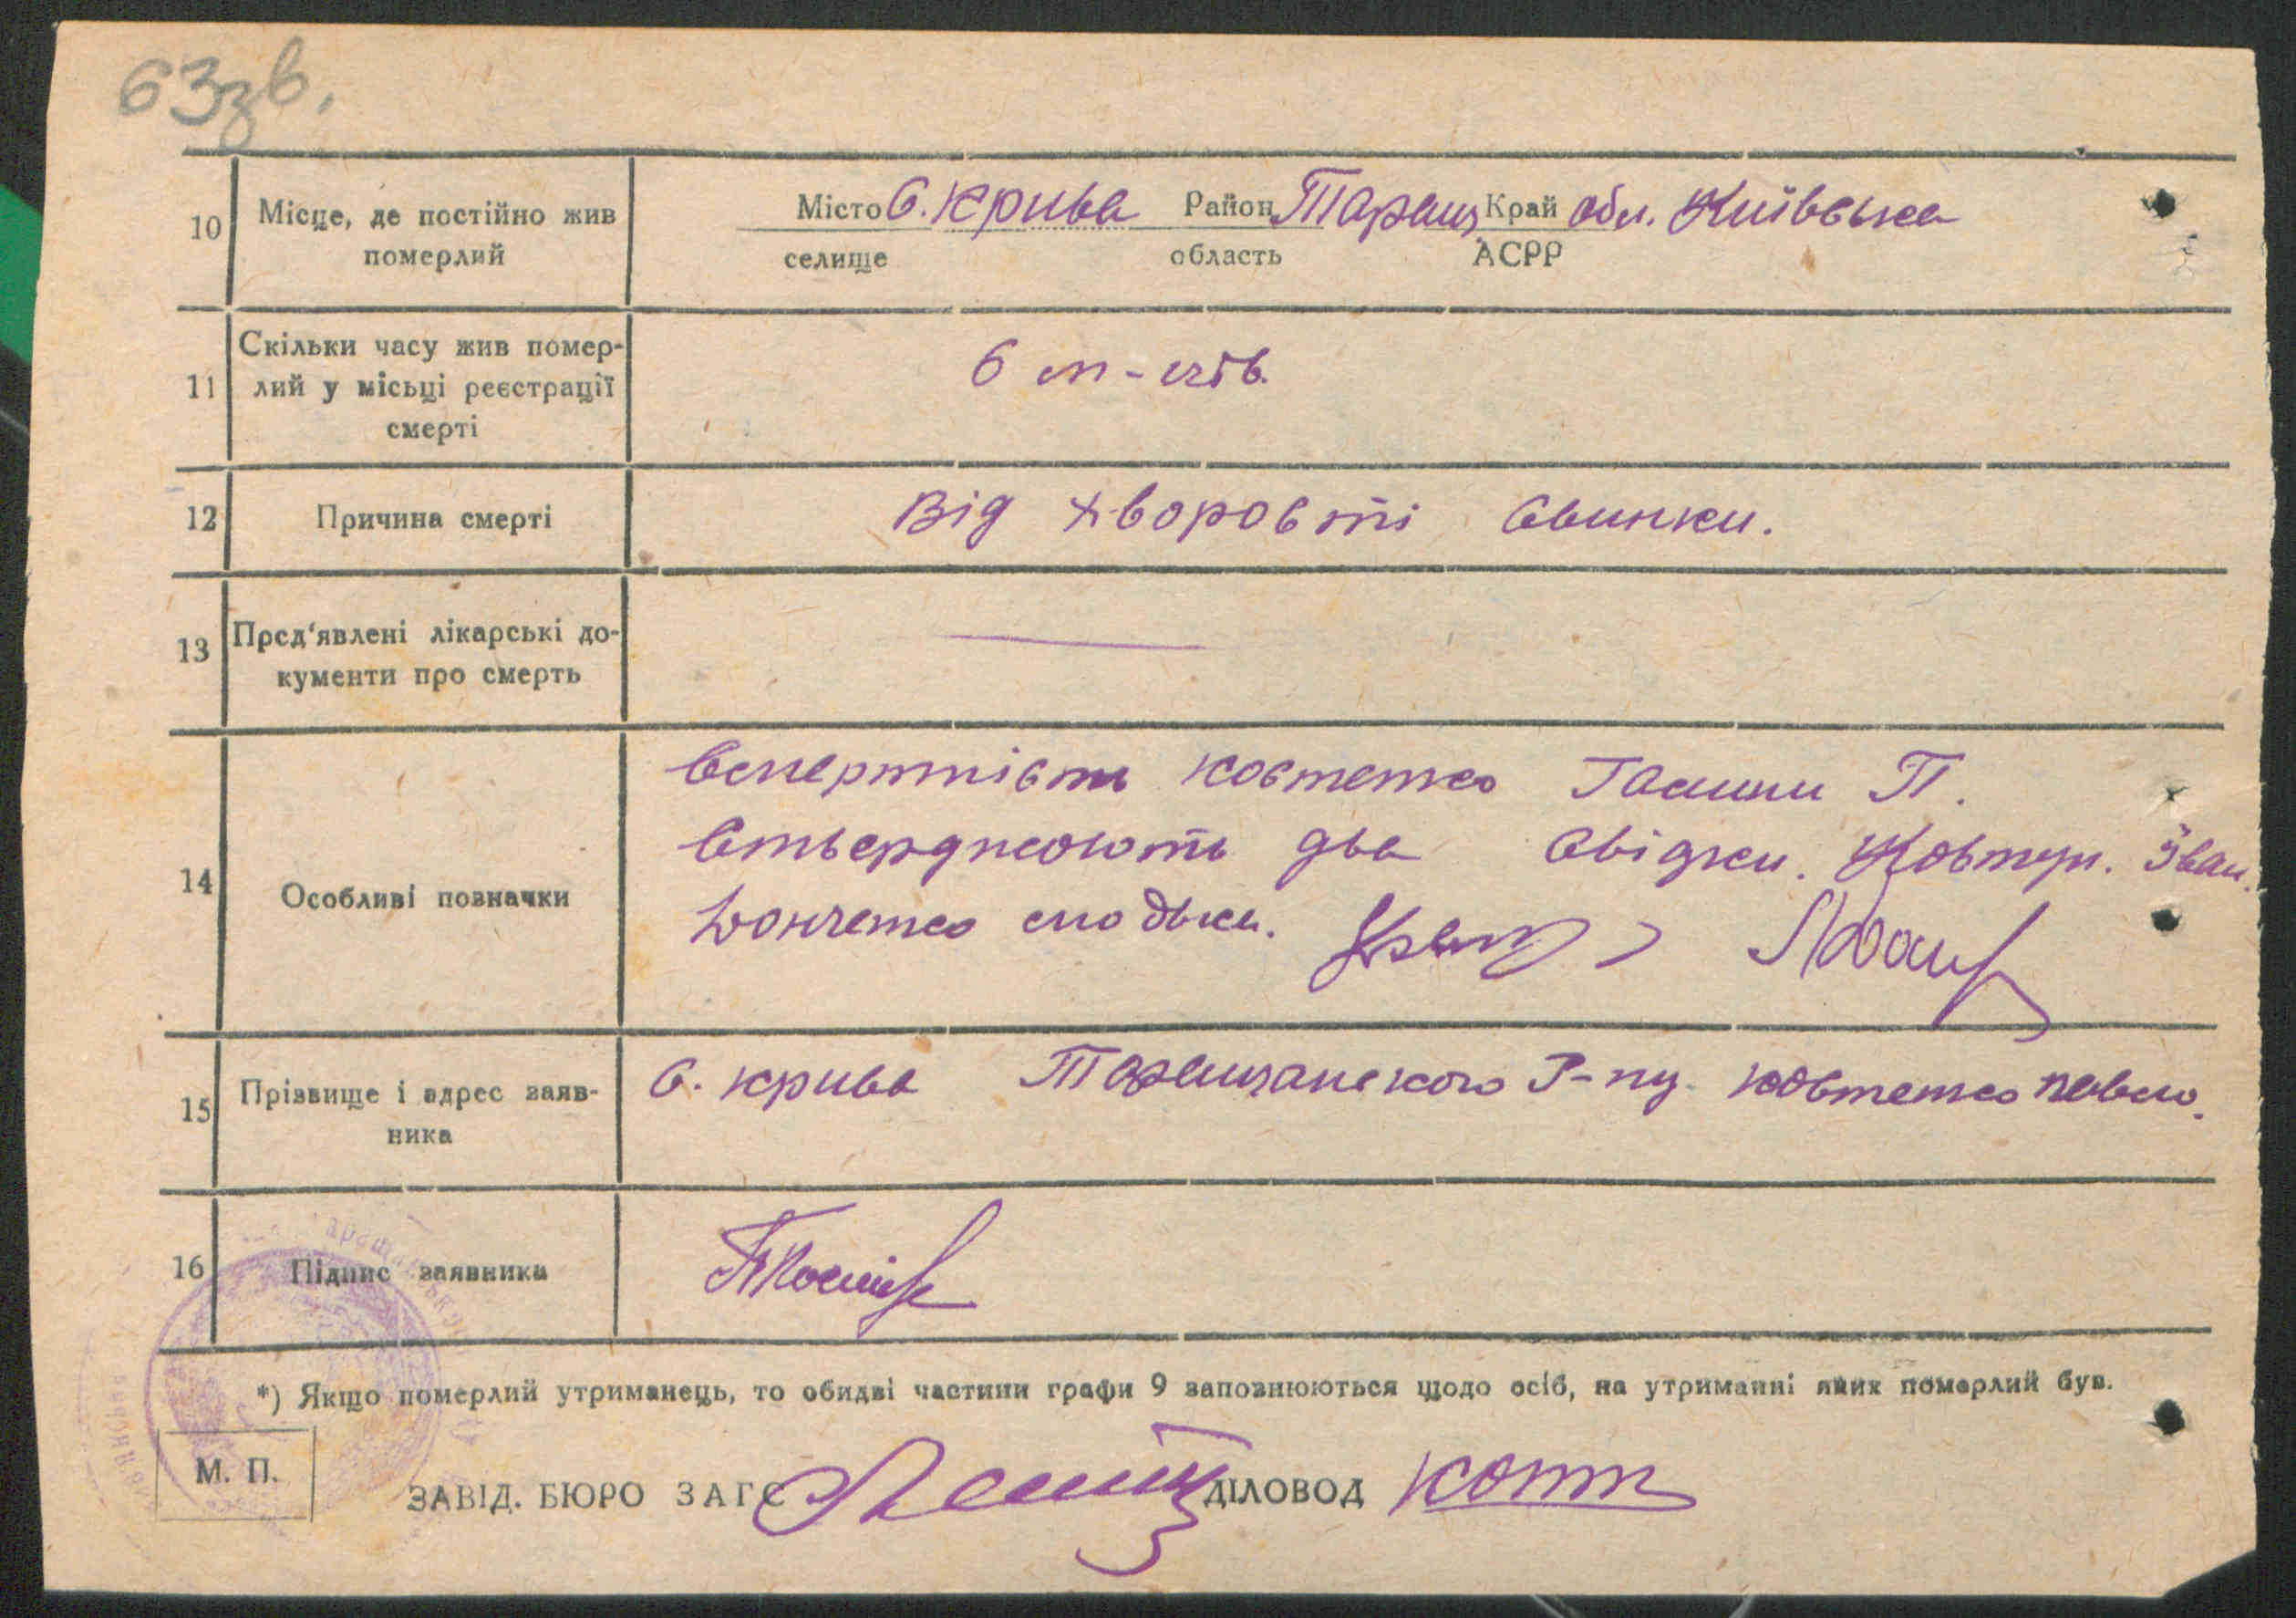 63зв.
10 Місце, де постійно жив померлий
Місто С. Крива Район Таращ. Край обл. Київська
селище область АСРР
11 Скільки часу жив помер-
лий у місьці реєстрації
смерті
6 м-ців.
12 Причина смерті
Від хворості Свинки.
13 Пред'явлені лікарські до-
кументи про смерть
14 Особливі позначки
Смертність Костенко Ганни П.
Стверджують два свідки. Ковтун. Іван.
15 Прізвище і адрес заяв-
ника
С. Крива Таращанского Р-ну. Костенко Павло.
16 Підпис заявника
*) Якщо померлий утриманець, то обидві частини графи 9 заповнюються щодо осіб, на утриманні яких померлий був.
М. П.
ЗАВІД. БЮРО ЗАГС ДІЛОВОД